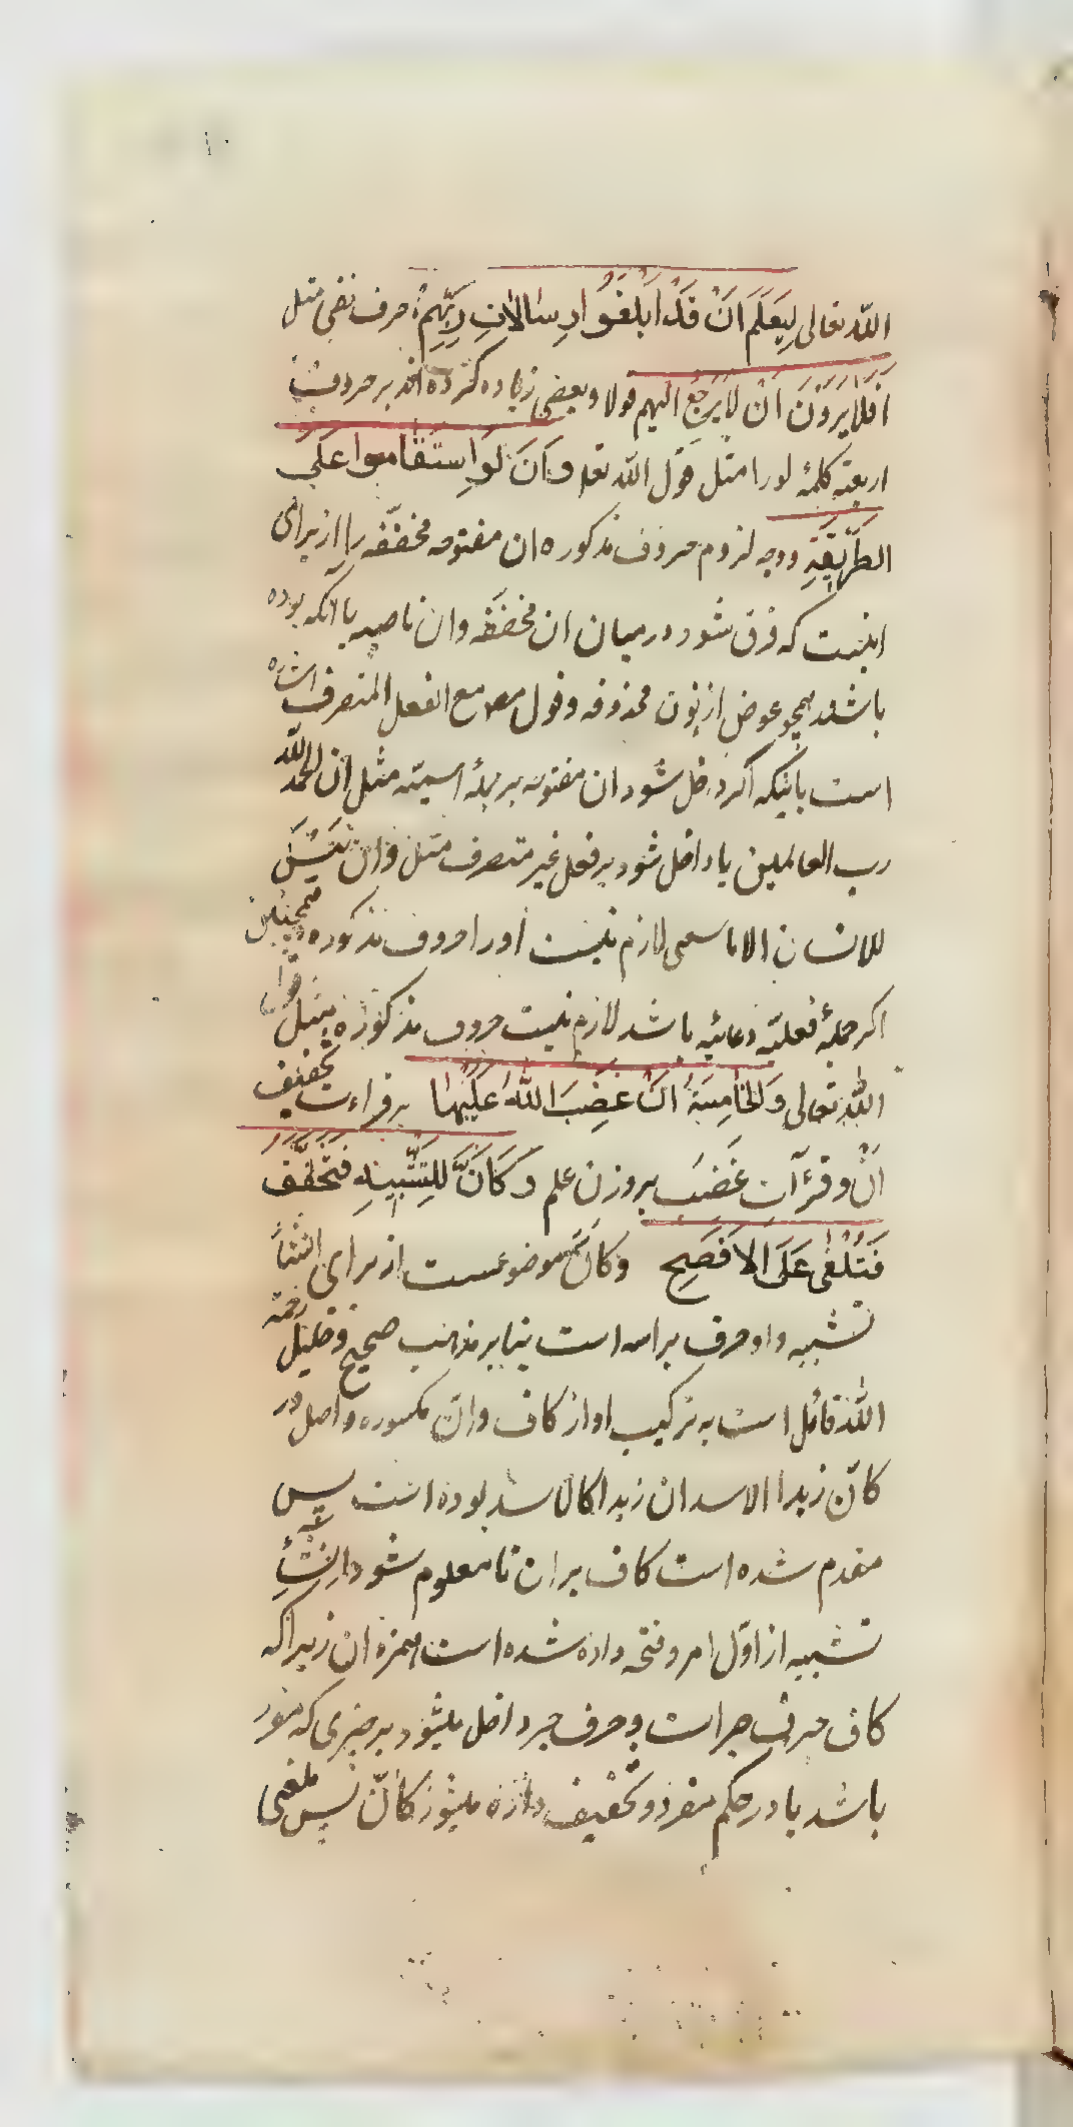 الله تعالی لِیَعلَمَ اَنْ قَدْ اَبلَغُوا رِسالاتِ رَبِّهِمْ حرف نفی مثل
اَفَلا یَرَوْنَ اَنْ لا یَرجِعُ الیهم قولا وبعضی زیاده کرده اند بر حروف
اربعة کلمهٔ لو را مثل قول الله تعا وَاَنْ لَوِ استَقاموا عَلَی
الطَّرِیقَةِ ووجه لزوم حروف مذکوره ان مفتوحه مخففّه را از برای
اینست که فرق شود در میان ان مخفّفه وان ناصبه یا انکه بوده
باشد همچو عوض از نون محذوفه وقول مص مع الفعل المتصرف اشاره
است باینکه اکر داخل شود ان مفتوحه بر جملهٔ اسمیّه مثل اَن الحمد لله
رب العالمین یا داخل شود بر فعل غیر متصرف مثل وان لَیْسَ
للانسان الا ما سعی لازم نیست او را حروف مذکوره همچنین
اکر جملهٔ فعلیّه دعائیه باشد لازم نیست حروف مذکوره مثل قول
الله تعالی وَالخامِسَةُ اَنْ غَضِبَ اللهُ عَلَیْها بر قراءت تخفیف
اَنْ وقرٰات غَضِبَ بر وزن علم وَ کَاَنَّ لِلتَّشبِیهِ فَتُخَفَّفُ
فَتُلْغٰی عَلَی الاَفْصَحِ وکَاَنَّ موضوعست از برای انشاء
تشبیه واو حرف براسه است بنابر مذهب صحیح وخلیل رحمة
الله قائل است به ترکیب او از کاف وانّ مکسوره واصل در
کانّ زیدا الاسد ان زیدا کالاسد بوده است پس
مقدم شده است کاف بر ان تا معلوم شود انشاء
تشبیه از اوّل امر وفتحه داده شده است همزه ان زیرا که
کاف حرف جر است وحرف جر داخل میشود بر چیزی که مفرد
باشد یا در حکم مفرد وتخفیف داده میشود کانّ پس ملغی